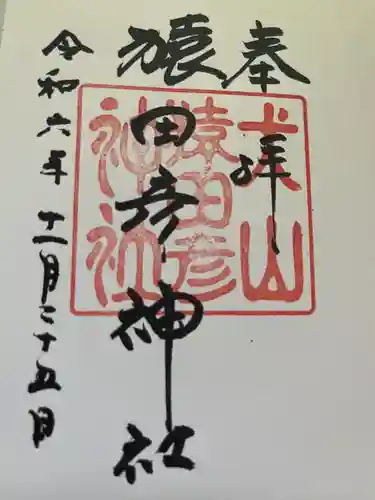 奉拝
猿田彦神社
令和六年十一月二十五日
犬山
猿田彦
神社